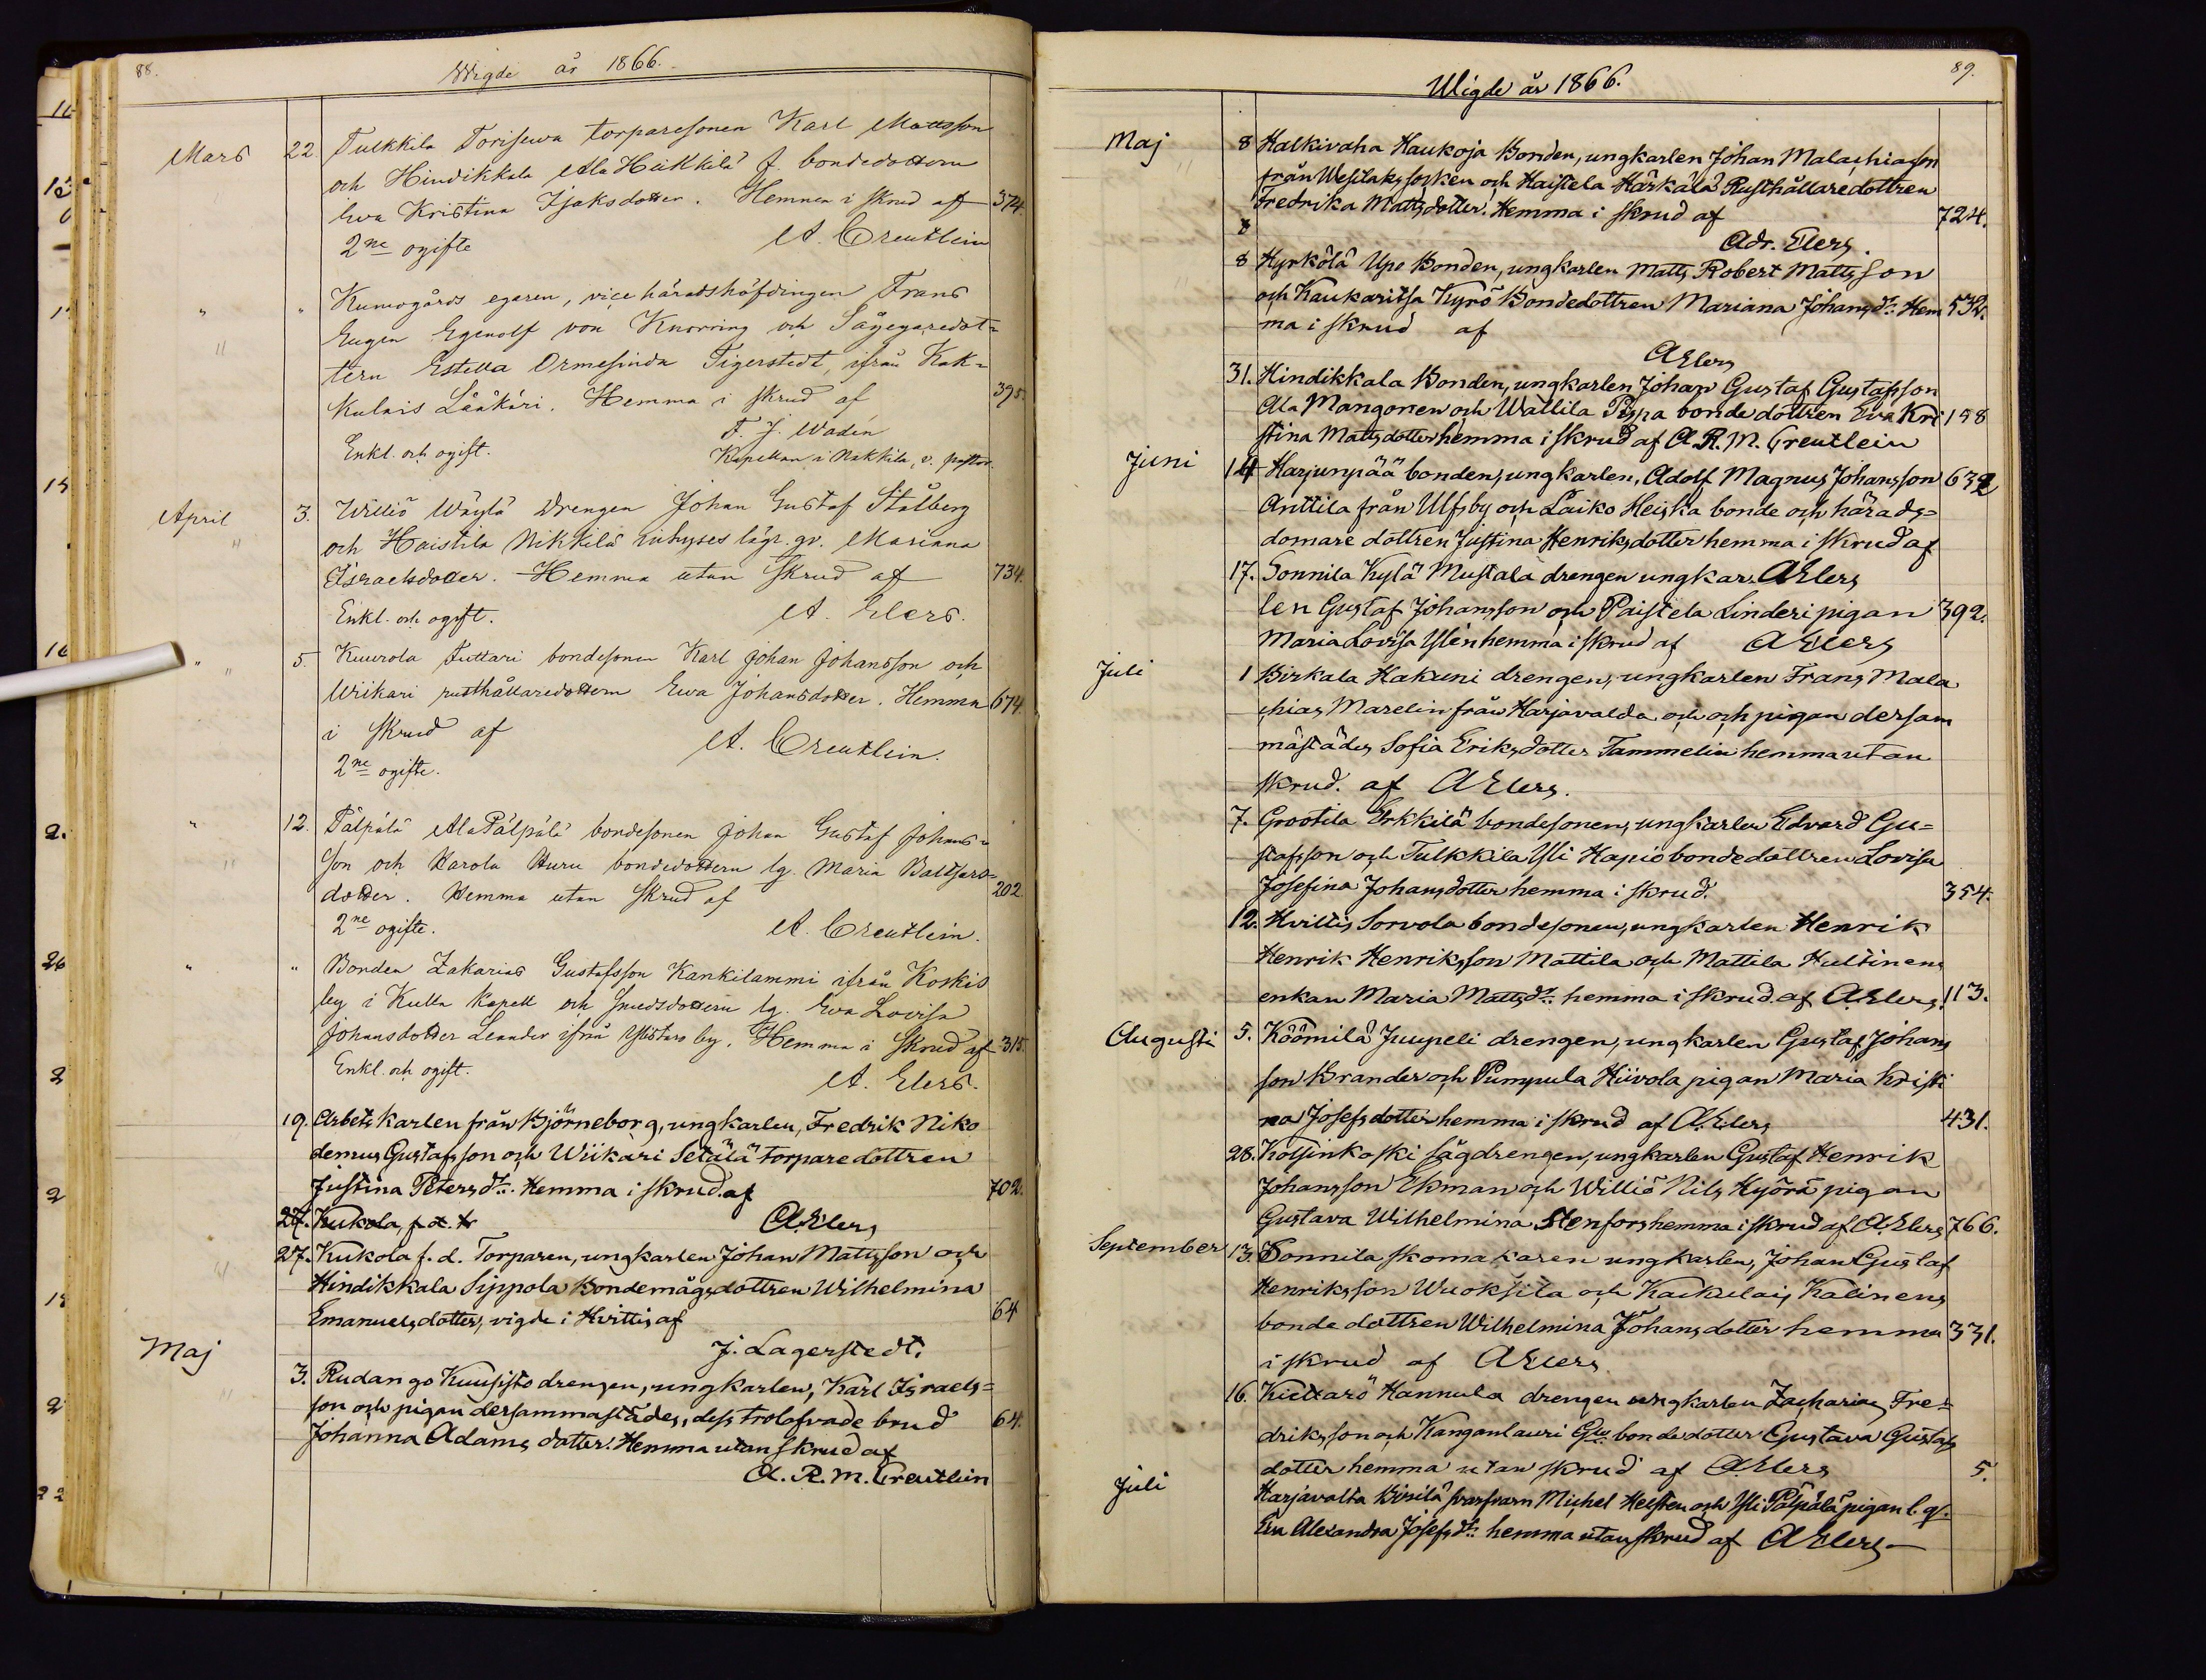 88.
Wigde år 1866.
Mars 22. Tulkkila Torisewa torparesonen Karl Mattsson
och Hindikkala Ala Heikkilä f. bondedottern
Ewa Kristina Isaksdotter. Hemma i skrud af 374.
2ne ogifte A. Creutlein
" " Kumogårds egaren, vice häradshöfdingen Frans
Eugen Egenolf von Knorring och Sågegaredot-
tern Estella Ormesinda Tigerstedt, ifrån Kak-
kulais Lääkäri. Hemma i skrud af 395.
F. J. Wadén
Enkl. och ogift. Kapellan i Nakkila, v. pastor.
April 3. Williö Wäylä drengen Johan Gustaf Stålberg
och Haistila Nikkilä inhyses lägr. qv. Mariana
Israelsdotter. Hemma utan skrud af 734.
Enkl. och ogift. A. Elers.
" 5. Kuurola Juttari bondesonen Karl Johan Johansson och
Wiikari rusthållaredottern Ewa Johansdotter. Hemma 674
i skrud af A. Creutlein.
2ne ogifte.
" 12. Pälpälä Ala Pälpälä bondesonen Johan Gustaf Johans-
son och Karola Huru bondedottern lg. Maria Baltsers-
dotter. Hemma utan skrud af 202
2ne ogifte. A. Creutlein.
" " Bonden Zakarias Gustafsson Kankilammi ifrån Koskis
by i Kulla Kapell och Smedsdottern lg. Ewa Lovisa
Johansdotter Leander ifrån Ylistaro by. Hemma i skrud af 315.
Enkl. och ogift. A. Elers.
19. Arbets karlen från Björneborg, ungkarlen, Fredrik Niko
demus Gustafsson och Wiikari Setälä torpare dottren
Justina Peters dr. Hemma i skrud af 702.
27. Kukola, f. d. tr AElers
27. Kukola f. d. Torparen, ungkarlen Johan Mattsson och
Hindikkala Sippola Bondemågsdottren Wilhelmina
Emanuelsdotter, vigde i Hvittis af 64
J. Lagerstedt.
Maj 3. Rudango Kuusisto drengen, ungkarlen, Karl Israels-
son och pigan dersammastädes, dess trolofvade brud 64.
Johanna Adams dotter. Hemma utan skrud af
A. R. M. Creutlein
89.
Wigde år 1866.
Maj 8 Halkivaha Haukoja Bonden, ungkarlen Johan Malachiasson
från Wesilaks socken och Haistela Härkälä Rusthållaredottren
Fredrika Mattsdotter. Hemma i skrud af 724.
8 Adr. Elers.
8 Kyrkölä Upo Bonden, ungkarlen Matts Robert Mattsson
och Kaukaritsa Kyrö Bondedottren Mariana Johans dr. Hem 532.
ma i skrud af
AElers
31. Hindikkala Bonden, ungkarlen Johan Gustaf Gustafsson
Ala Mangonen och Wallila Pispa bonde dottren Eva Kri 158
stina Mattsdotter hemma i skrud af A. R. M. Creutlein
Juni 14 Harjunpää bonden, ungkarlen, Adolf Magnus Johansson 632
Anttila från Ulfsby och Laiko Heiska bonde och härads-
domare dottren Justina Henriksdotter hemma i skrud af
17. Sonnila Kylä Mustala drengen ungkar- AElers
len Gustaf Johansson och Paistela Linderi pigan 392.
Maria Lovisa Ylén hemma i skrud af AElers
Juli 1 Birkala Hakuni drengen, ungkarlen Frans Mala
chias Marelin från Harjavalda och och pigan dersam
mastädes Sofia Eriksdotter Tammelin hemma utan
skrud. af AElers.
7. Grootila Erkkilä bondesonen, ungkarlen Edvard Gu-
stafsson och Tulkkila Yli Hapio bondedottren Lovisa
Josefina Johansdotter hemma i skrud. 354.
12. Hvittis Sorvola bondesonen, ungkarlen Henrik
Henrik Henriksson Mattila och Mattila Hultinens
enkan Maria Matts dr. hemma i skrud. af AElers. 113.
Augusti 5. Köömilä Juupeli drengen, ungkarlen Gustaf Johans
son Brander och Pumpula Hiivola pigan Maria Kristi
na Josefsdotter hemma i skrud af A. Elers 431.
28. Kolsinkoski sågdrengen, ungkarlen Gustaf Henrik
Johansson Ekman och Williö Nils Hyörä pigan
Gustava Wilhelmina Stenfors hemma i skrud af A. Elers 766.
September 13. Sonnila skomakaren ungkarlen, Johan Gustaf
Henriksson Wuoksila och Kackulais Kalinens
bonde dottren Wilhelmina Johansdotter hemma 331.
i skrud af AElers
16. Kiettarö Hannula drengen ungkarlen Zacharias Fre-
driksson och Kanganlauri bondedotter Gustava Gustafs
dotter hemma utan skrud af AElers 5.
Juli Harjavalta Birilä svarfvarn Michel Helsten och Yli Pälpälä pigan l. qv.
Eva Alexandra Josefs dr. hemma utan skrud af AElers